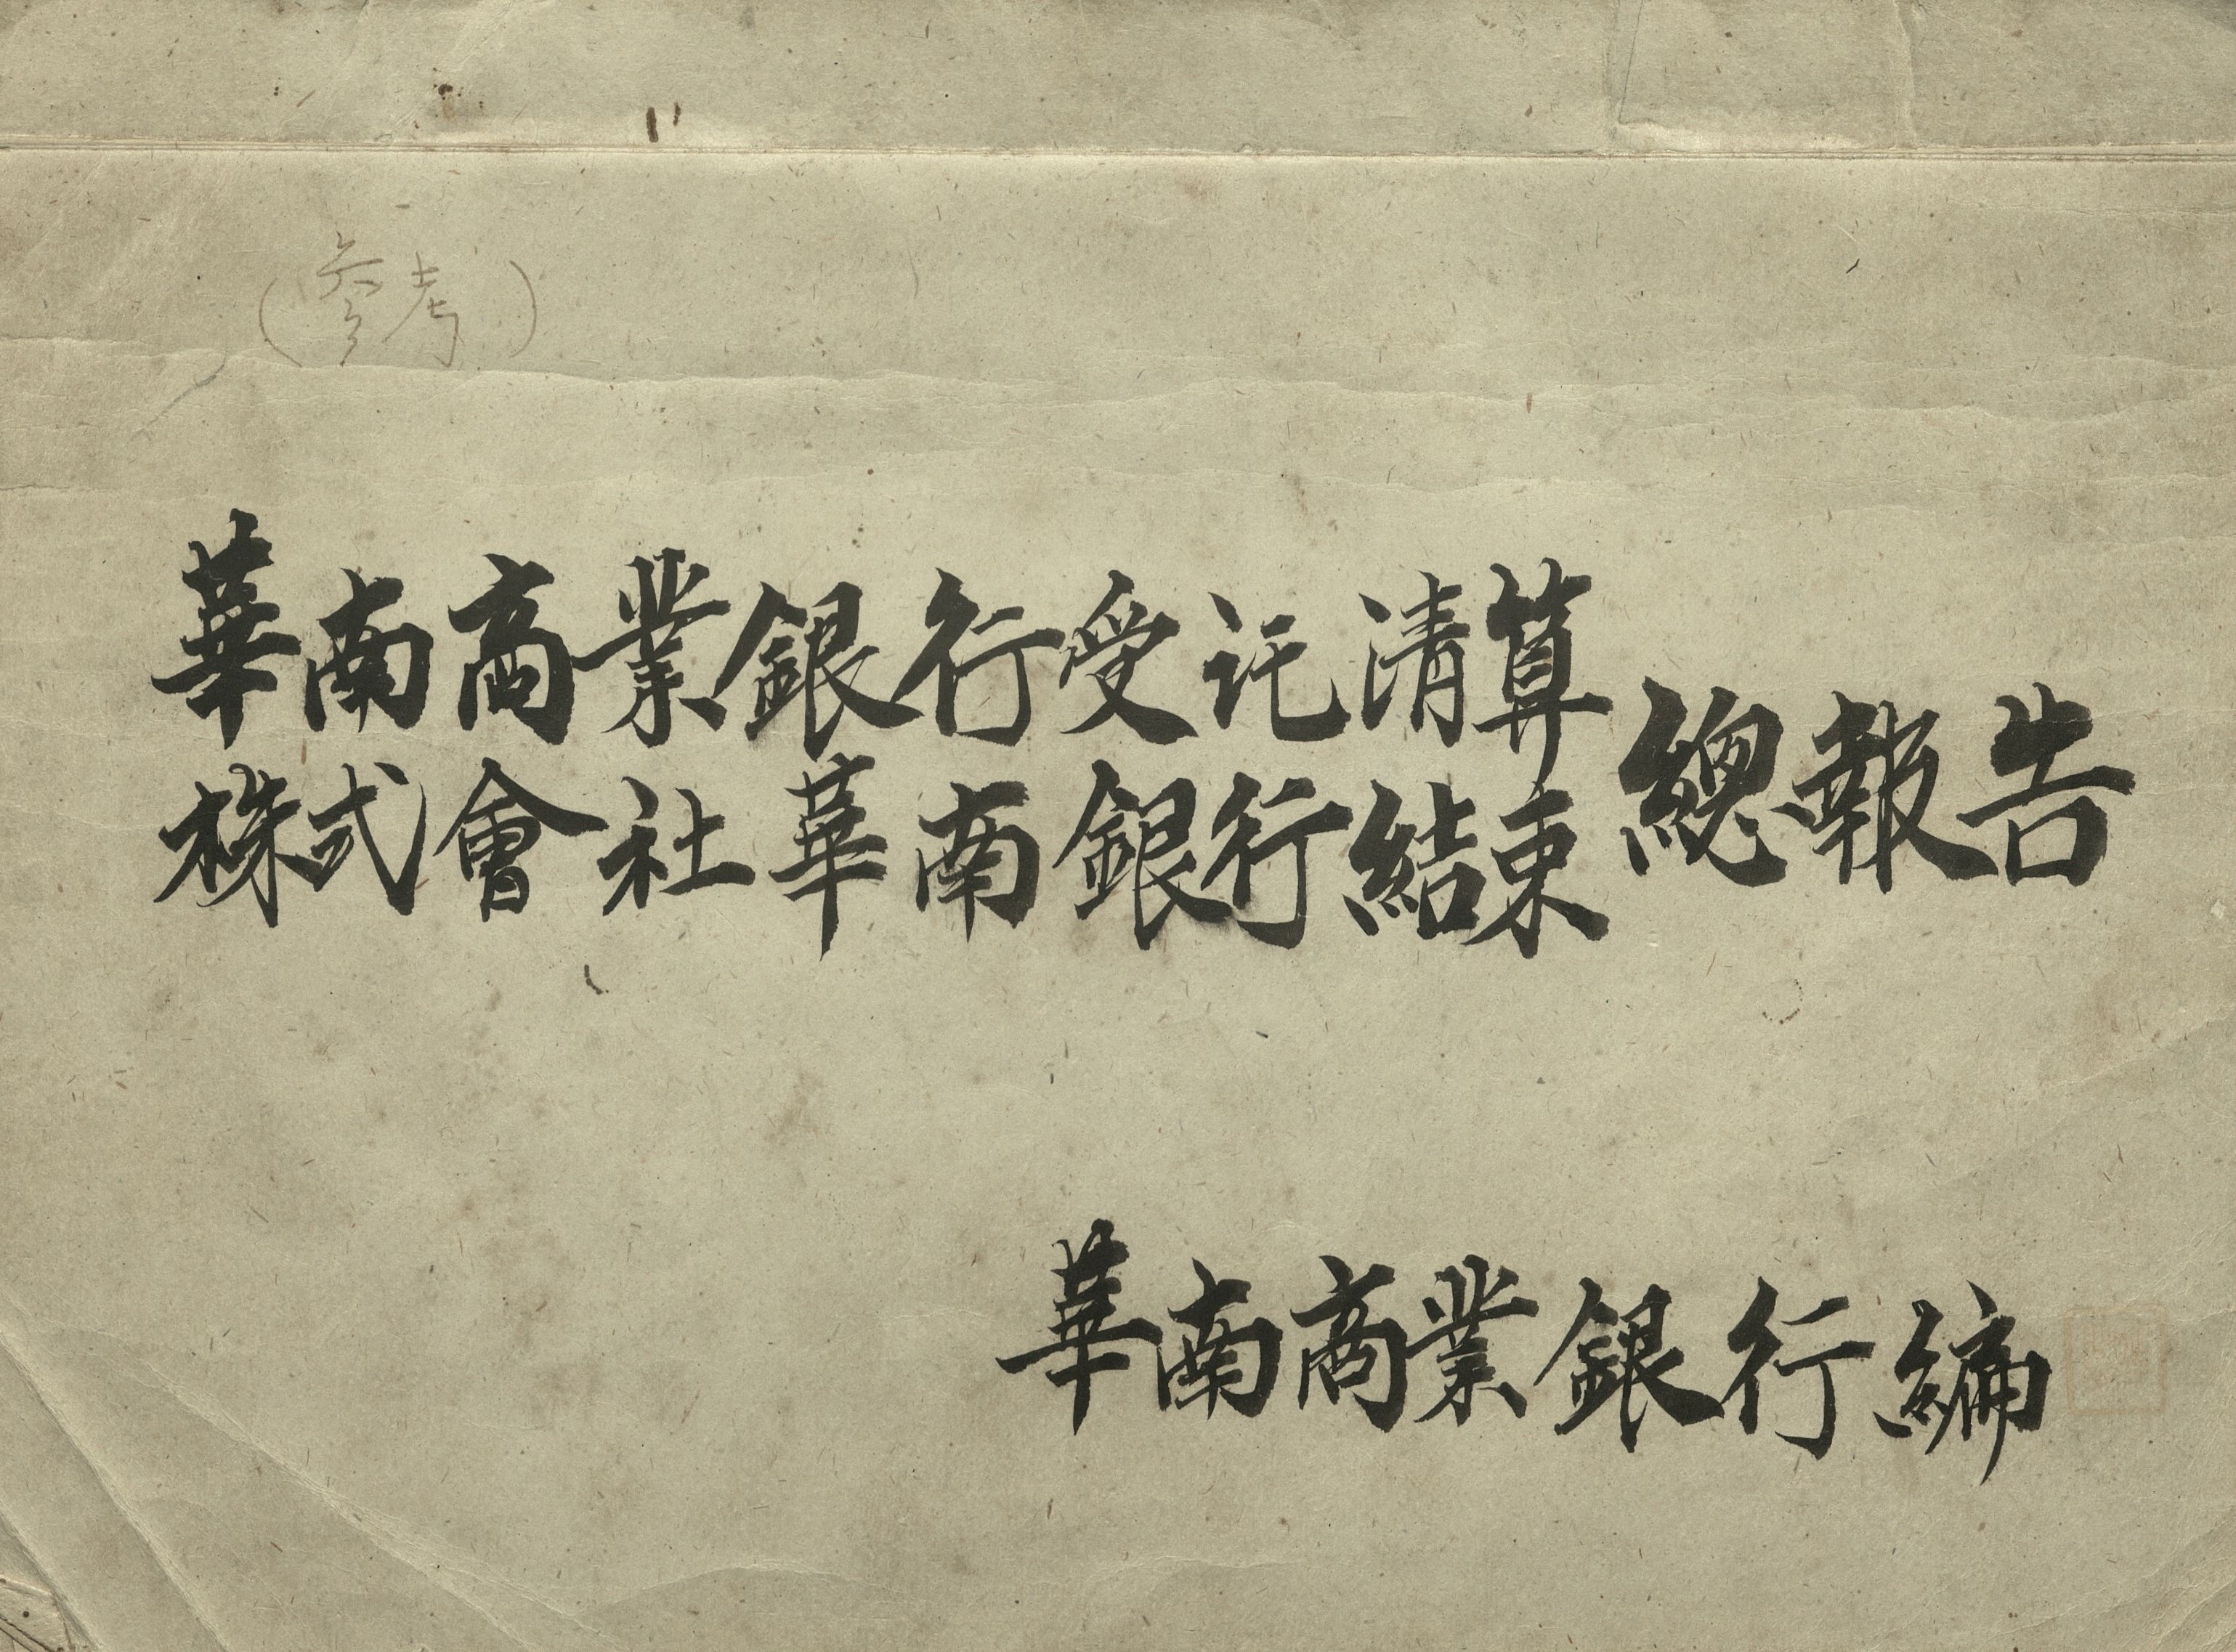 (参考)
華南商業銀行受託清算
株式會社華南銀行結束
總報告
華南商業銀行編